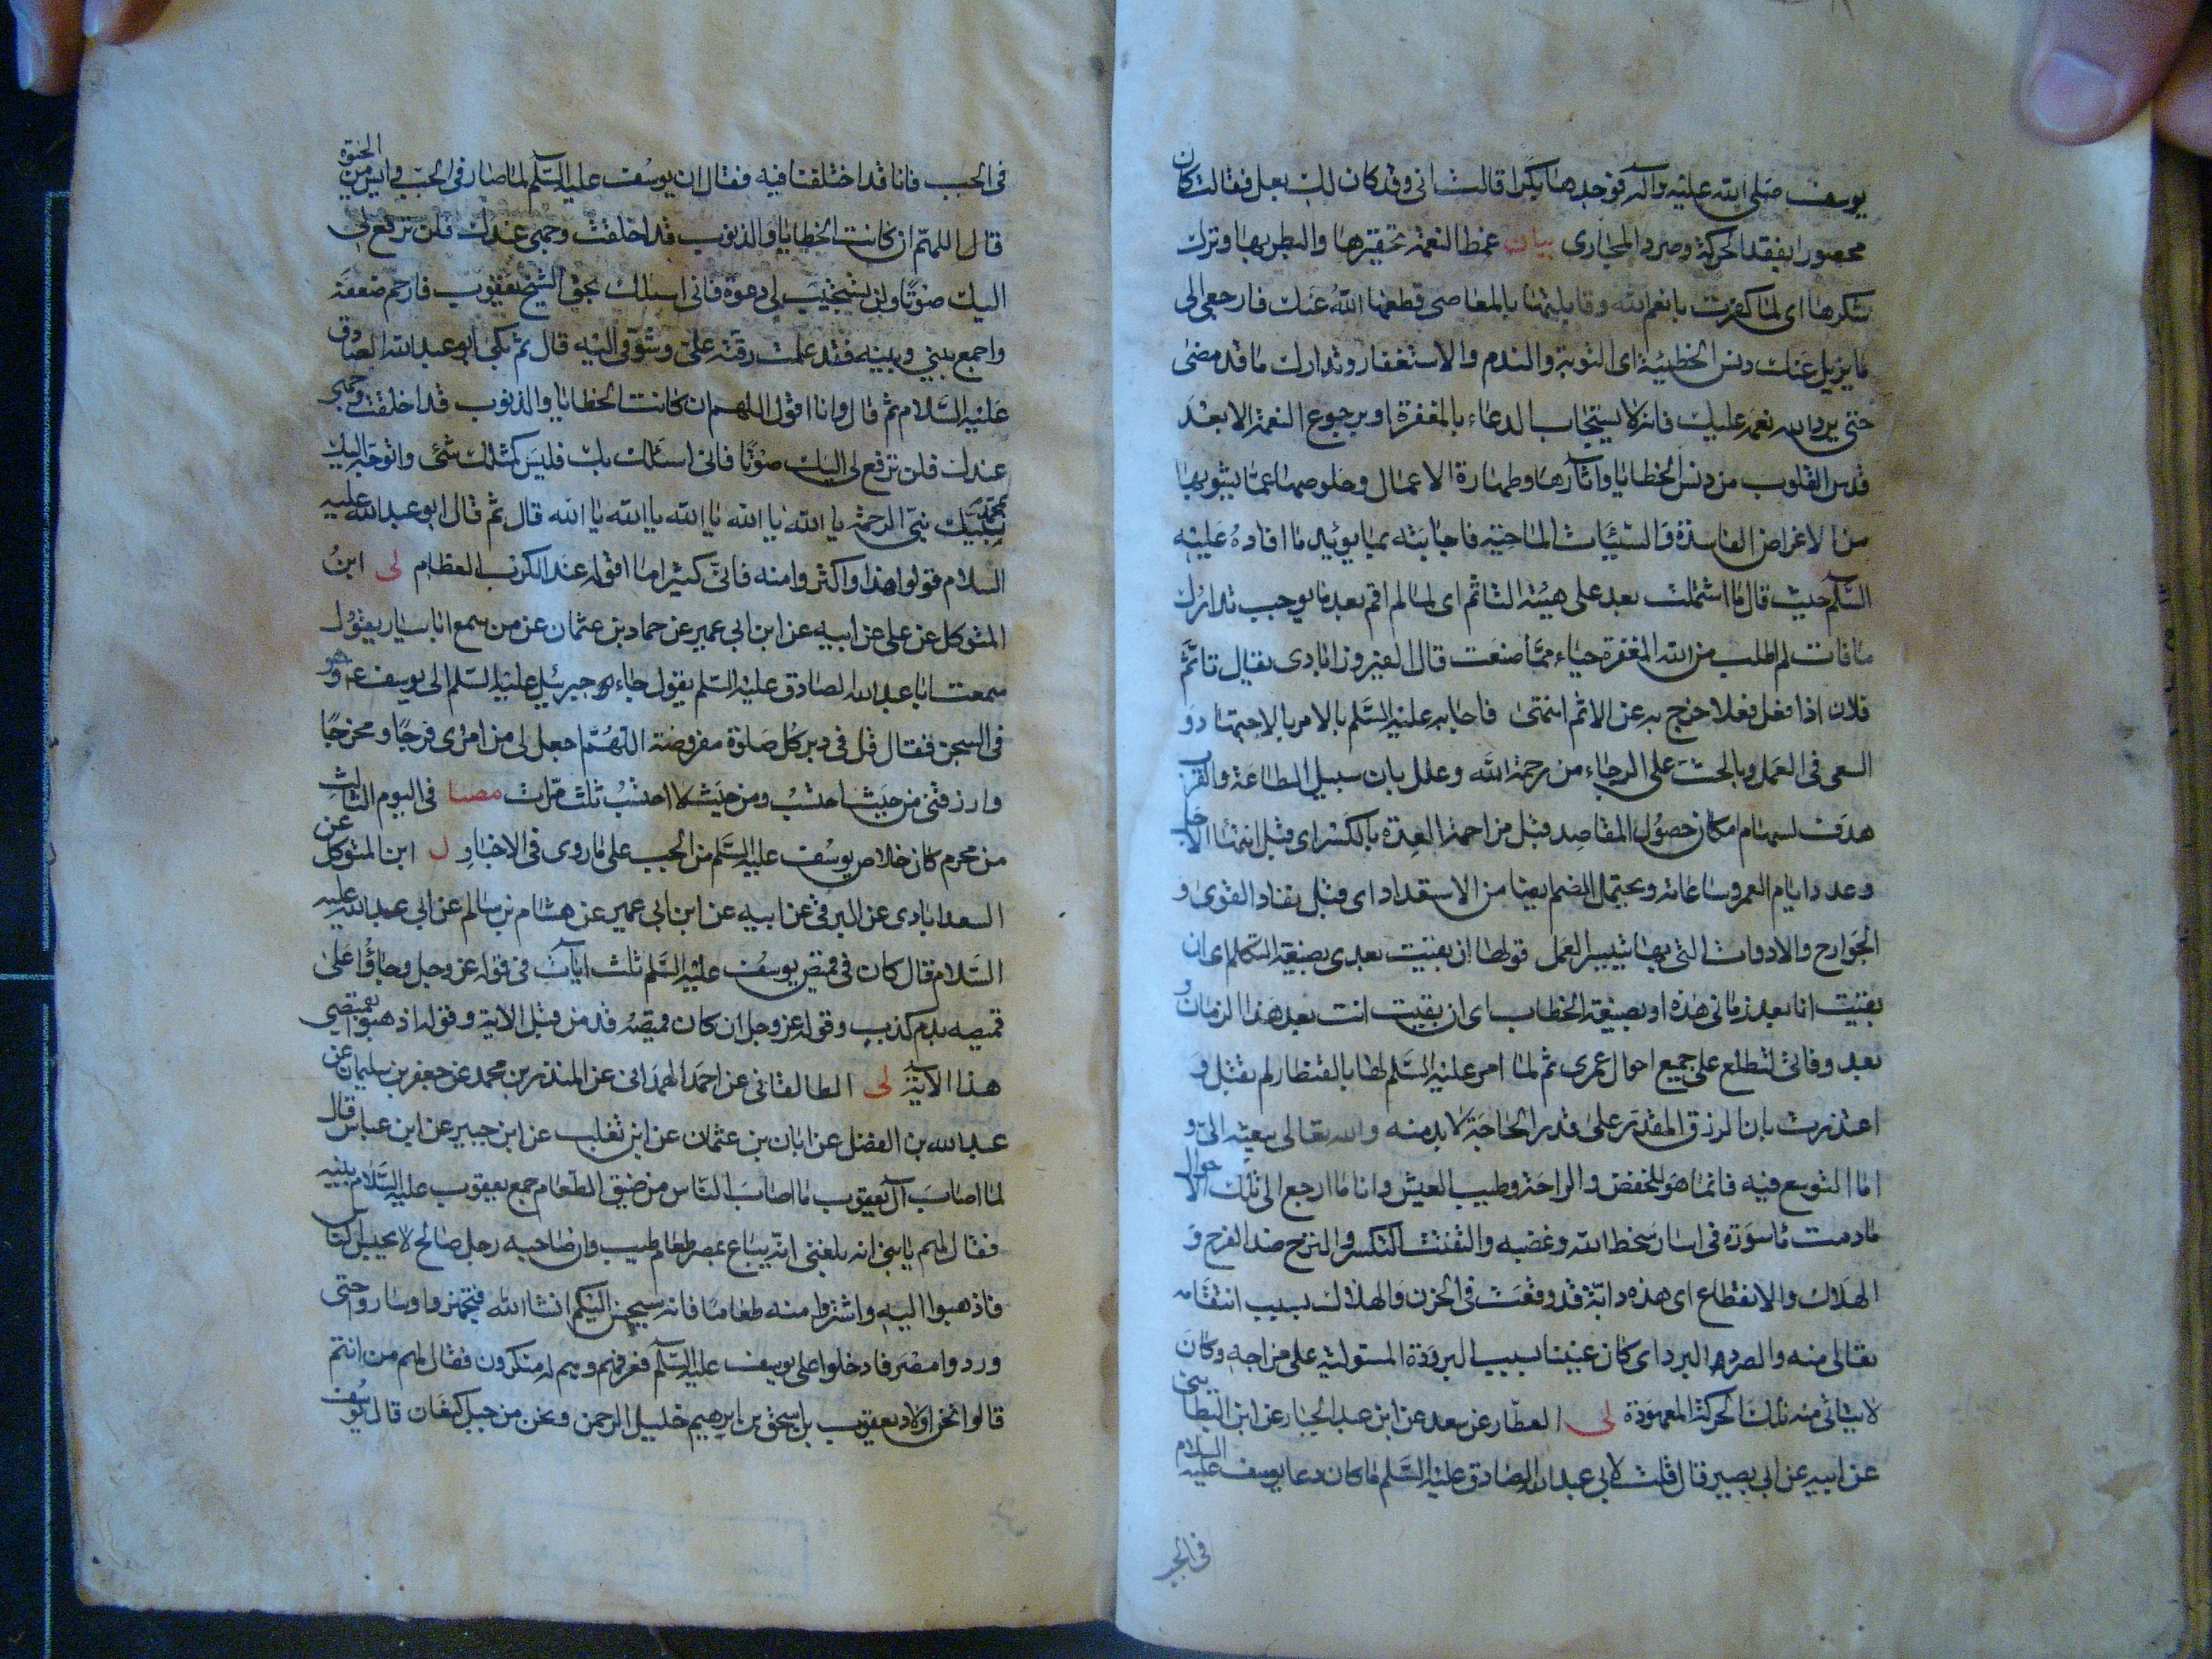 يوسف صلى الله عليه وآله فوجدها بكرا قالت انى وقد كان لك بعل فقالت كان
محصورا بفقد الحركة وصرد المجارى بيان غمط النعمة تحقيرها والبطر بها وترك
شكرها اى لما كفرت بانعم الله وقابلتها بالمعاصى قطعها الله عنك فارجعى الى
ما يزيل عنك دنس الخطيئة اى التوبة والندم والاستغفار وتدارك ما قد مضى
حتى يرد الله نعمه عليك فانه لا يستجاب الدعاء بالمغفرة او برجوع النعمة الا بعد
قدس القلوب من دنس الخطايا وآثارها وطهارة الاعمال وخلوصها عما يشوبها
من الاغراض الفاسدة والسيئات الماحية فاجابته بما يؤيد ما افاده عليه
السلم حيث قال ما اشتملت بعد على هيئة التاثم اى لما لم اقم بعد ما يوجب تدارك
ما فات لم اطلب من الله المغفرة حياء مما صنعت قال الفيروزابادى يقال تاثم
فلان اذا فعل فعلا خرج به عن الاثم انتهى فاجابه عليه السلم بالامر بالاجتهاد و
السعى فى العمل وبالحث على الرجاء من رحمة الله وعلل بان سبيل الطاعة والقرب
هدف لسهام امكان حصول المقاصد قبل مزاحمة العدة بالكسر اى قبل انتهاء الاجل
وعدد ايام العمر وساعاته ويحتمل الضم ايضا من الاستعداد اى قبل نفاد القوى و
الجوارح والادوات التى بها يتيسر العمل قولها ان بقيت بعدى بصيغة التكلم اى ان
بقيت انا بعد زمانى هذه او بصيغة الخطاب اى ان بقيت انت بعد هذا الزمان و
بعد وفاتى لتطلع على جميع احوال عمرى ثم لما امر عليه السلم لها بالقنطار لم تقبل و
اعتذرت بان الرزق المقدر على قدر الحاجة لا بد منه والله تعالى يبعثه الى و
اما التوسع فيه فانما هو للخفض والراحة وطيب العيش وانا ما ارجع الى تلك الاحوال
ما دمت ماسورة فى اسار سخط الله وغضبه والتفتت التكسر والترح ضد الفرح و
الهلاك والانقطاع اى هذه دابة قد وقعت فى الحزن والهلاك بسبب انتقامه
تعالى منه والصرد البرد اى كان عنينا بسبب البرودة المستولية على مزاجه وكان
لا يتاتى منه تلك الحركة المعهودة لى العطار عن سعد عن ابن عبد الجبار عن ابن البطاينى
عن ابيه عن ابى بصير قال قلت لابى عبد الله الصادق عليه السلم ما كان دعا يوسف عليه السلام
فى الجب
فى الجب فانا قد اختلفنا فيه فقال ان يوسف عليه السلم لما صار فى الجب وايس من الحيوة
قال اللهم ان كانت الخطايا والذنوب قد اخلقت وجهى عندك فلن ترفع لى
اليك صوتا ولن تستجيب لى دعوة فانى اسئلك بحق الشيخ يعقوب فارحم ضعفه
واجمع بينى وبينه فقد علمت رقته على وشوقى اليه قال ثم بكى ابو عبد الله الصادق
عليه السلام ثم قال وانا اقول اللهم ان كانت الخطايا والذنوب قد اخلقت وجهى
عندك فلن ترفع لى اليك صوتا فانى اسئلك بك فليس كمثلك شئ واتوجه اليك
بمحمد نبيك نبى الرحمة يا الله يا الله يا الله يا الله يا الله قال ثم قال ابو عبد الله عليه
السلام قولوا هذا واكثروا منه فانى كثيرا ما اقوله عند الكرب العظام لى ابن
المتوكل عن على عن ابيه عن ابن ابى عمير عن حماد بن عثمان عن من سمع ابا سيار يقول
سمعت ابا عبد الله الصادق عليه السلم يقول جاء جبرئيل عليه السلم الى يوسف ع وهو
فى السجن فقال قل فى دبر كل صلوة مفروضة اللهم اجعل لى من امرى فرجا ومخرجا
وارزقنى من حيث احتسب ومن حيث لا احتسب ثلث مرات مصبا فى اليوم الثالث
من محرم كان خلاص يوسف عليه السلم من الجب على ما روى فى الاخبار ل ابن المتوكل عن
السعدابادى عن البرقى عن ابيه عن ابن ابى عمير عن هشام بن سالم عن ابى عبد الله عليه
السلام قال كان فى قميص يوسف عليه السلم ثلث ايات فى قوله عز وجل وجاؤا على
قميصه بدم كذب وقوله عز وجل ان كان قميصه قد من قبل الاية وقوله اذهبوا بقميصى
هذا الاية لى الطالقانى عن احمد الهمدانى عن المنذر بن محمد عن جعفر بن سليمان عن
عبد الله بن الفضل عن ابان بن عثمان عن ابن تغلب عن ابن جبير عن ابن عباس قال
لما اصاب آل يعقوب ما اصاب الناس من ضيق الطعام جمع يعقوب عليه السلام بنيه
فقال لهم يا بنى انه بلغنى انه يباع بمصر طعام طيب وان صاحبه رجل صالح لا يحبس الناس
فاذهبوا اليه واشتروا منه طعاما فانه سيحسن اليكم انشا الله فتجهزوا وساروا حتى
وردوا مصر فادخلوا على يوسف عليه السلم فعرفهم وهم له منكرون فقال لهم من انتم
قالوا نحن اولاد يعقوب بن اسحق بن ابرهيم خليل الرحمن ونحن من جبل كنعان قال يوسف